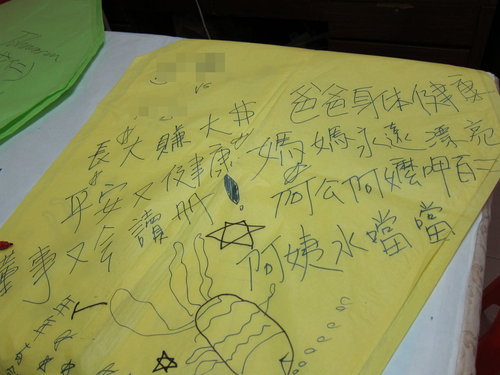 vs
爸爸身体健康
媽媽永遠漂亮
阿公阿嬤呷百二
阿姨水噹噹
長大賺大井
平安又健康
懂事又会讀册